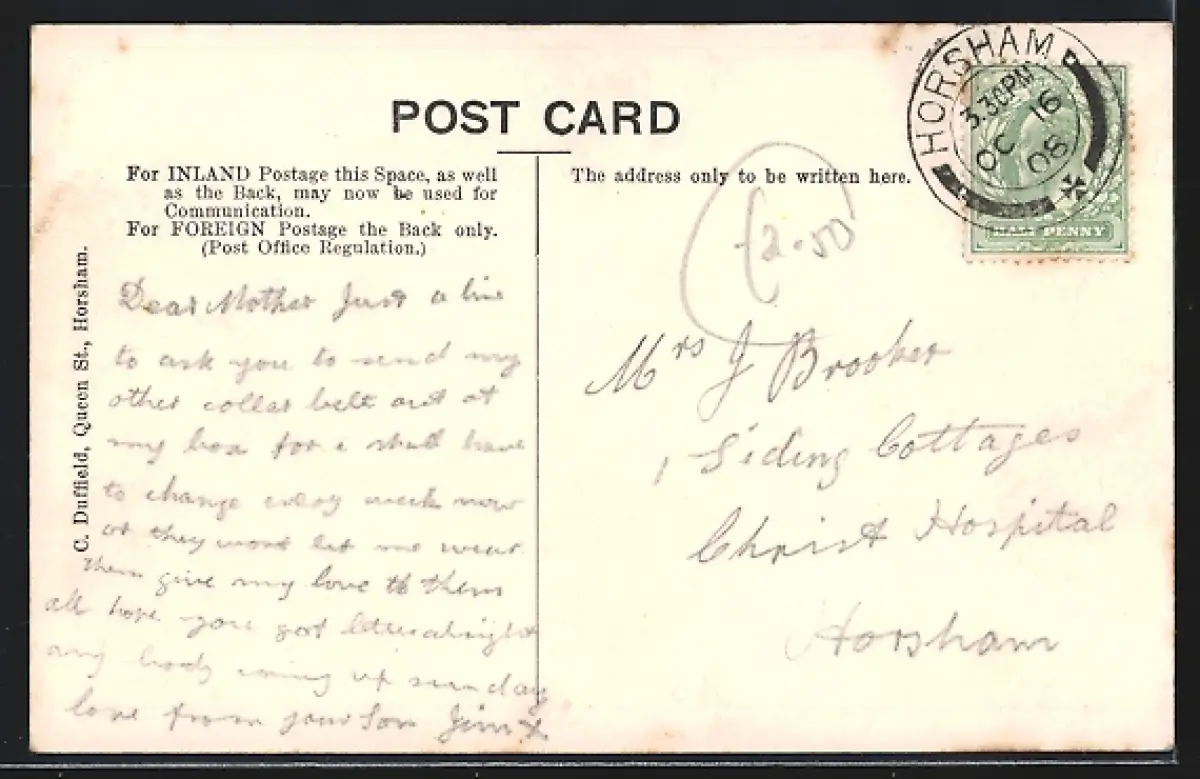 POST CARD
For INLAND Postage this Space, as well
as the Back, may now be used for
Communication.
For FOREIGN Postage the Back only.
(Post Office Regulation.)
The address only to be written here.
HORSHAM
3.30PM
OC 16
08
HALF PENNY
C. Duffield, Queen St., Horsham.
Dear Mother Just a line
to ask you to send my
other collar belt out at
my box for i shall have
to change every week now
or they wont let me wear
them give my love to them
all hope you got letter alright
any body coming up sunday
love from your Son Jim X
(2.50
Mrs J Brooker
1 Siding Cottages
Christ Hospital
Horsham